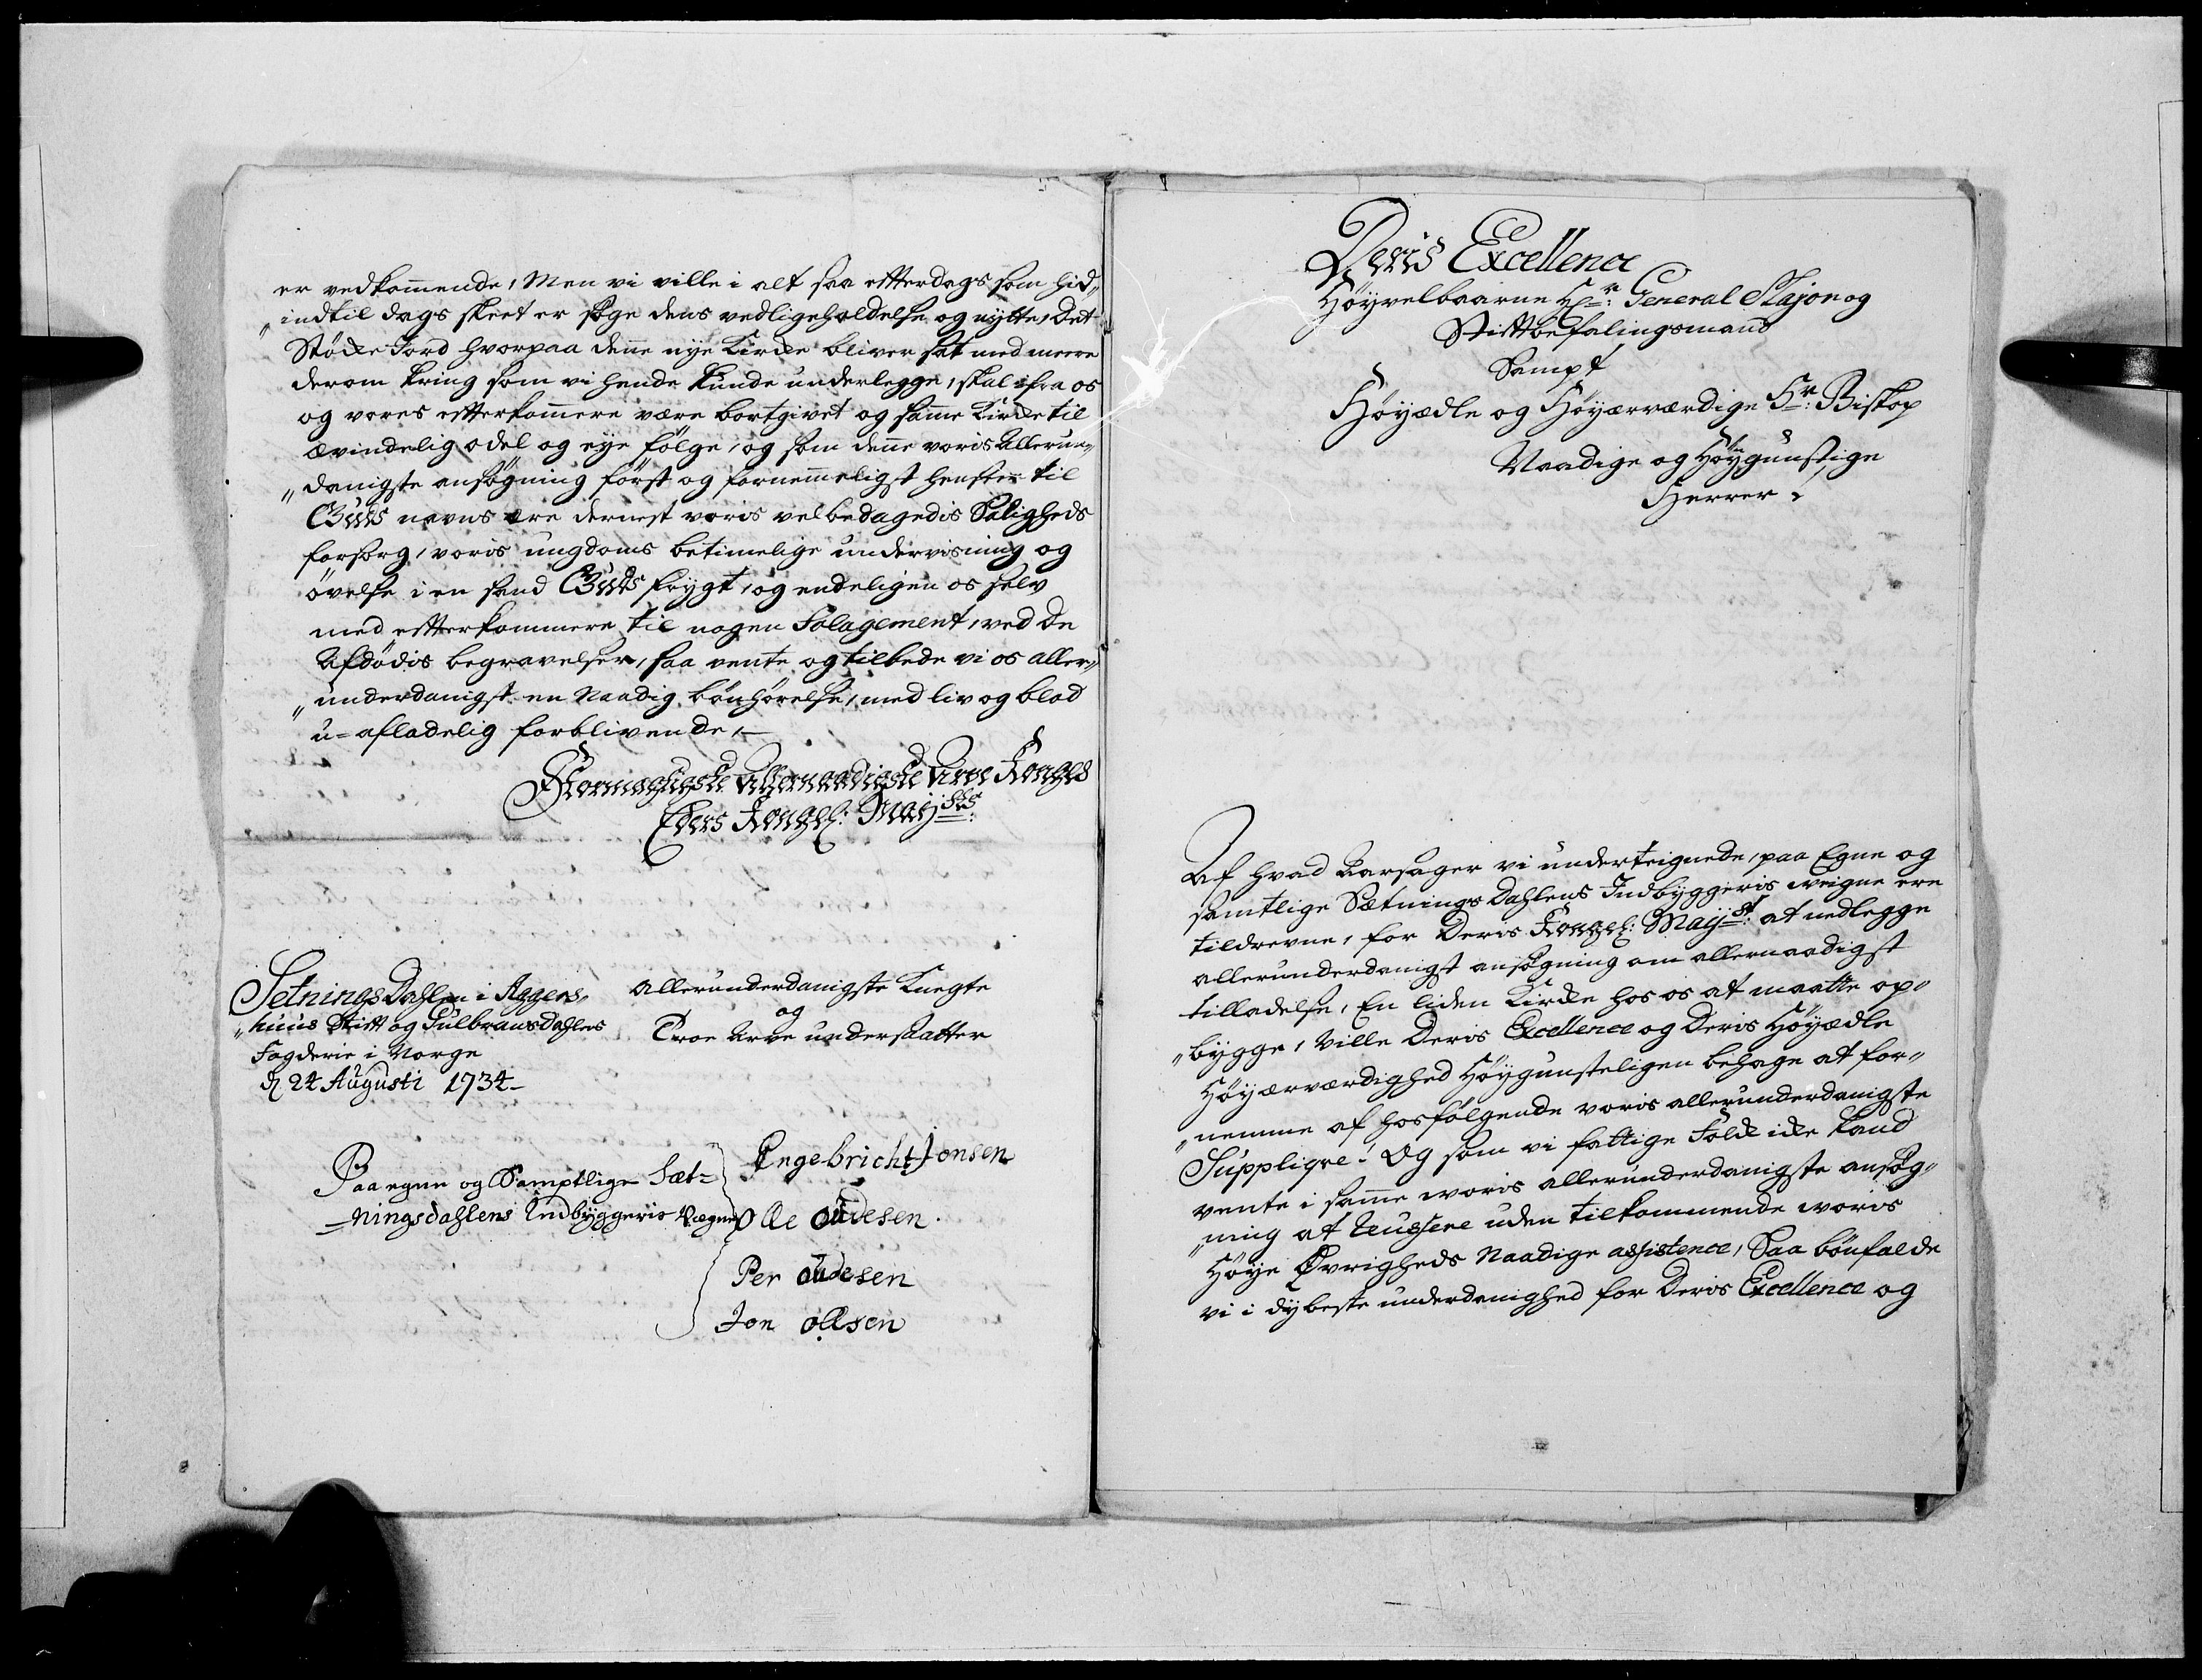 er vedkom̄ende, Men vi ville i alt saa effterdags som hid„
„indtil dags skeet er søge dens vedligeholdelse og nytte, Det
Støcke Jord hvorpaa den̄e nye Kircke bliver sat med meere
derom kring som vi hende kunde underlegge, skal ifra os
og vores effterkom̄ere være bortgivet og sam̄e Kircke til
ævindelig odel og eye følge, og som den̄e voris Allerun„
„danigste ansøgning først og fornem̄eligst henseer til
Guds navns ære dernest voris velbedagedis Saligheds
forsorg, voris ungdoms betimelige undervisning og
øvelse i en sand Guds frygt, og endeligen os selv
med effterkommere til nogen Solagement, ved De
Afdødis begravelser, saa vente og tilbede vi os aller„
„underdanigst en Naadig bønhørelse, med liv og blod
u-afladelig forblivende,
Stormægtigste Allernaadigste Arve Konges
Eders Kongel: Maysts:
Setnings Dahlen i Aggers„
„huus Stift og Gulbransdahlens
Fogderie i Norge
d 24 Augusti 1734-
allerunderdanigste Knegte
og
Troe Arve undersaatter
Paa egne og Samptlige Sæt=
-ningsdahlens Indbyggeris Vegne
Engebricht Jonsen
Ole oudesen.
Per oudesen
Jon ollsen
Deris Excellence
Høyvelbaarne Hr: General Major og
Stiftbefalingsmand
Sampt
Høyædle og Høyærværdige Hr: Biskop
Naadige og Høygunstige
Herrer
Af hvad Aarsager vi underteignede, paa Egne og
samtlige Sætnings Dahlens Indbyggeris weigne ere
tildrevne, for Deris Kongel: Mayst: at nedlegge
allerunderdanigst ansøgning om allernaadigst
tilladelse, En liden Kircke hos os at maatte op„
„bygge, Ville Deris Excellence og Deris Høyædle
Høyærværdighed Høygunsteligen behage at for„
„nemme af hosfølgende voris allerunderdanigste
Suppliqve! Og som vi fattige Folck icke kand
vente i sam̄e woris allerunderdanigste ansøg„
„ning at reussere uden tilkommende woris
Høye Øvrigheds Naadige assistence, Saa bønfalde
vi i dybeste underdanighed for Deris Excellence og